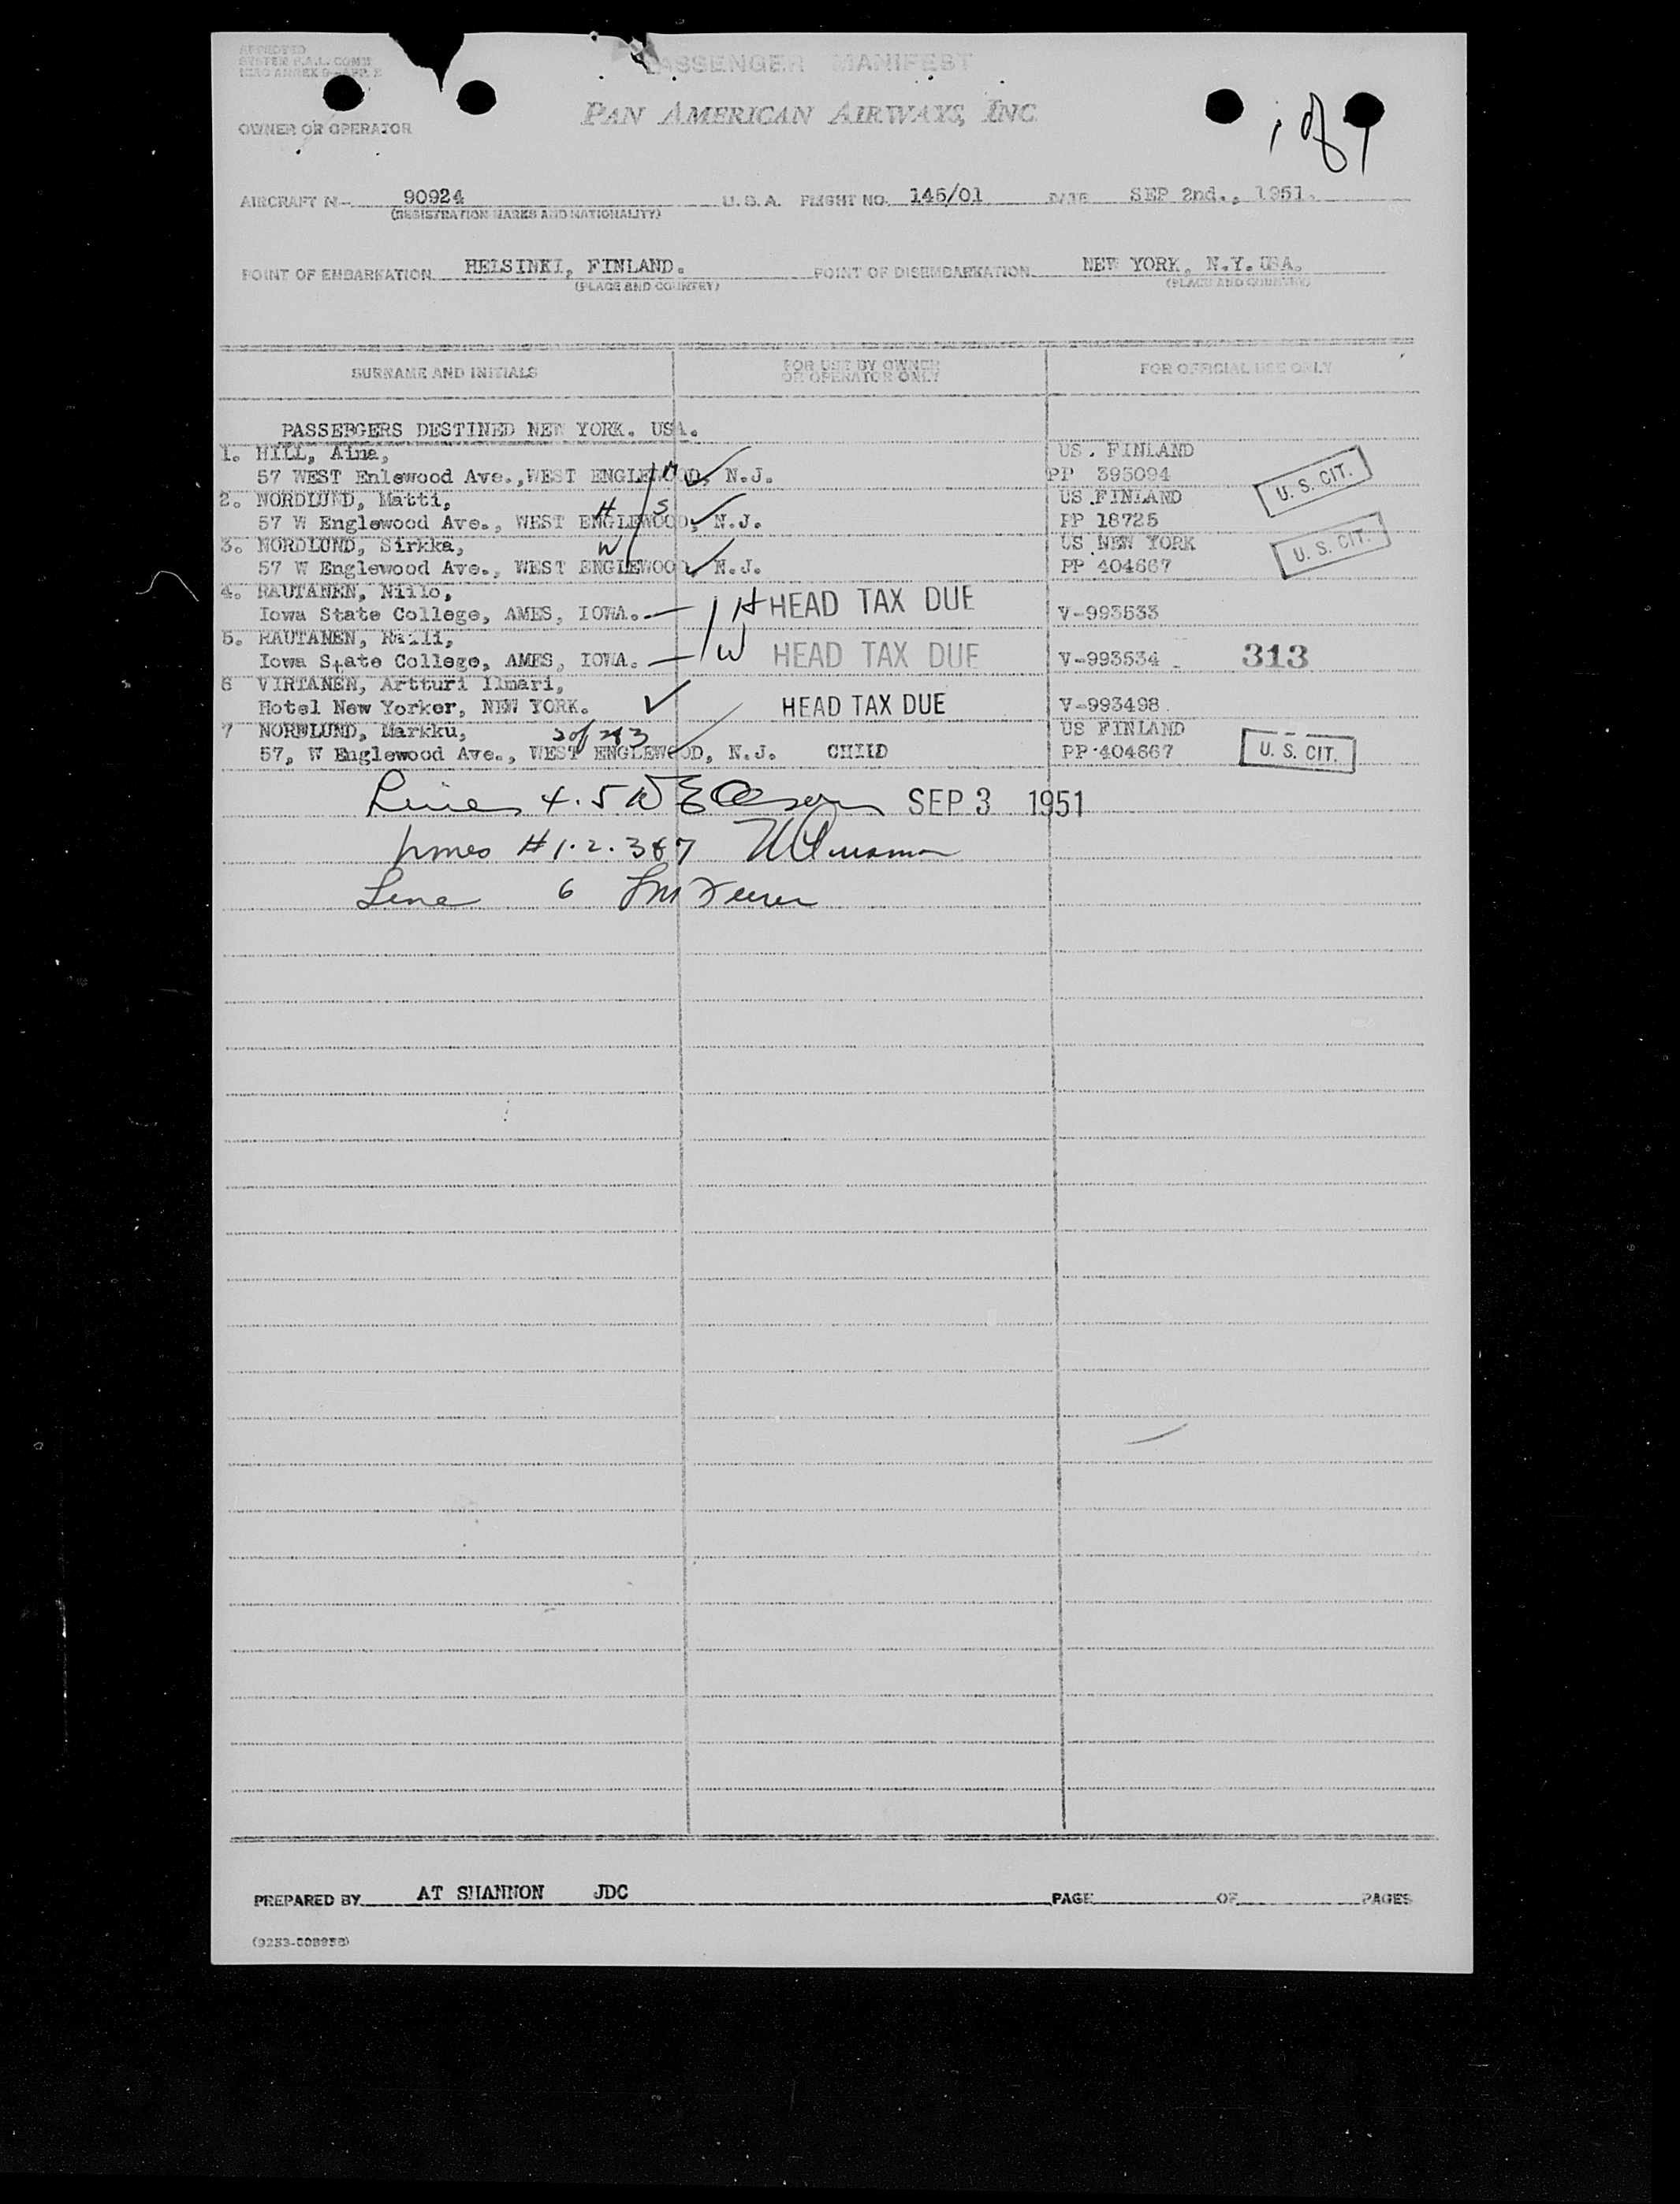 APPROVED
SYSTEM F.A.L. COMM
ICAO ANNEX 9-APP. 2
PASSENGER MANIFEST
PAN AMERICAN AIRWAYS, INC
1 of 1
OWNER OR OPERATOR
AIRCRAFT N- 90924 U.S.A. FLIGHT NO. 145/01 DATE SEP 2nd., 1951.
(REGISTRATION MARKS AND NATIONALITY)
POINT OF EMBARKATION HELSINKI, FINLAND. POINT OF DISEMBARKATION NEW YORK, N.Y. USA.
(PLACE AND COUNTRY) (PLACE AND COUNTRY)
SURNAME AND INITIALS FOR USE BY OWNER OR OPERATOR ONLY FOR OFFICIAL USE ONLY
PASSEBGERS DESTINED NEW YORK. USA.
1. HILL, Aina, US. FINLAND
57 WEST Enlewood Ave.,WEST ENGLEWOOD, N.J. PP 395094 U. S. CIT.
2. NORDLUND, Matti, US.FINLAND
57 W Englewood Ave., WEST ENGLEWOOD, N.J. PP 18725
H S
3. NORDLUND, Sirkka, W US NEW YORK U. S. CIT.
57 W Englewood Ave., WEST ENGLEWOOD, N.J. PP 404667
4. RAUTANEN, Niilo, H HEAD TAX DUE
Iowa State College, AMES, IOWA. V-993533
5. RAUTANEN, Raili, W HEAD TAX DUE
Iowa State College, AMES, IOWA. V-993534 313
6 VIRTANEN, Artturi Ilmari,
Hotel New Yorker, NEW YORK. HEAD TAX DUE V-993498
7 NORDLUND, Markku, US FINLAND
57, W Englewood Ave., WEST ENGLEWOOD, N.J. CHILD PP 404667 U. S. CIT.
Lines 4.5 SEP 3 1951
Lines # 1.2.3&7
Line 6
PREPARED BY AT SHANNON JDC PAGE OF PAGES